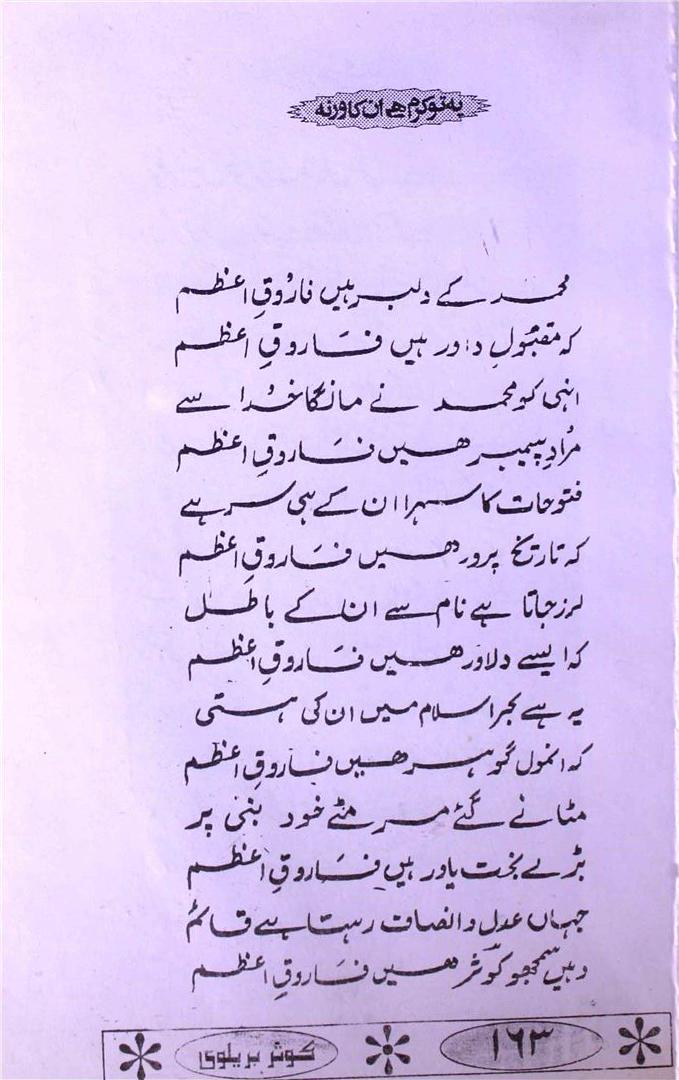 یہ تو کرم ہے ان کا ورنہ
محمد کے دلبر ہیں فاروقِ اعظم
کہ مقبُولِ داور ہیں فَاروقِ اعظم
انہی کو محمد نے مانگا خُدا سے
مُرادِ پیمبر ھیں فَاروقِ اعظم
فتوحات کا سہرا ان کے ہی سر ہے
کہ تاریخ پرور ھیں فَاروقِ اعظم
لرز جاتا ہے نام سے ان کے باطل
کہ ایسے دلاور ھیں فَاروقِ اعظم
یہ ہے بحرِ اسلام میں ان کی ہستی
کہ انمول گوہر ھیں فاروقِ اعظم
مٹانے گئے مر مٹے خود نبی پر
بڑے بخت یاور ہیں فَاروقِ اعظم
جہاں عدل و انصاف رہتا ہے قائم
وہیں سمجھو کوثر ھیں فَاروقِ اعظم
۱۶۳ کوثر بریلوی